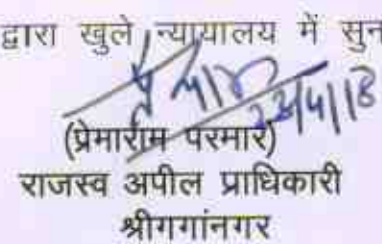 द्वारा खुले न्यायालय में सुन
23/4/18
(प्रेमाराम परमार)
राजस्व अपील प्राधिकारी
श्रीगगांनगर